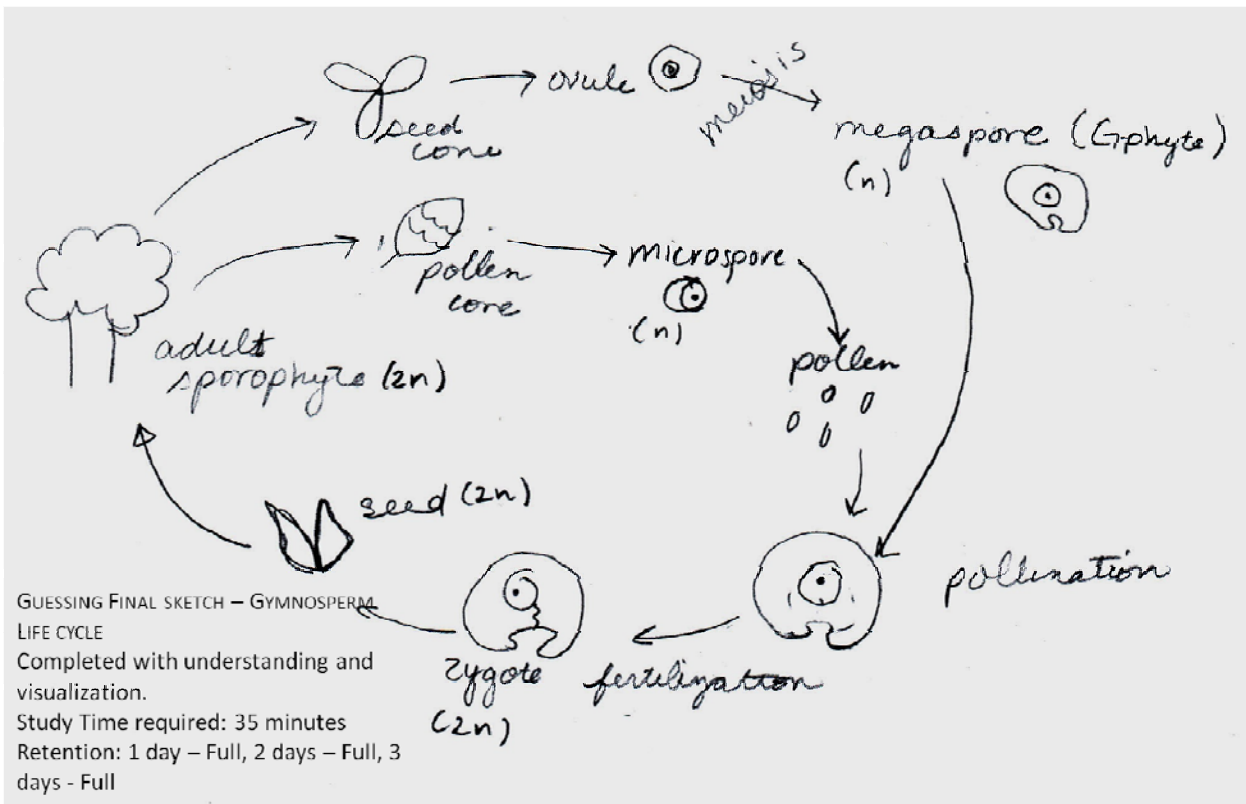 seed
cone
ovule
meiosis
megaspore (Gphyte)
(n)
pollen
cone
microspore
(n)
adult
sporophyte (2n)
pollen
seed (2n)
pollination
zygote
(2n)
fertilization
GUESSING FINAL SKETCH – GYMNOSPERM
LIFE CYCLE
Completed with understanding and
visualization.
Study Time required: 35 minutes
Retention: 1 day – Full, 2 days – Full, 3
days - Full